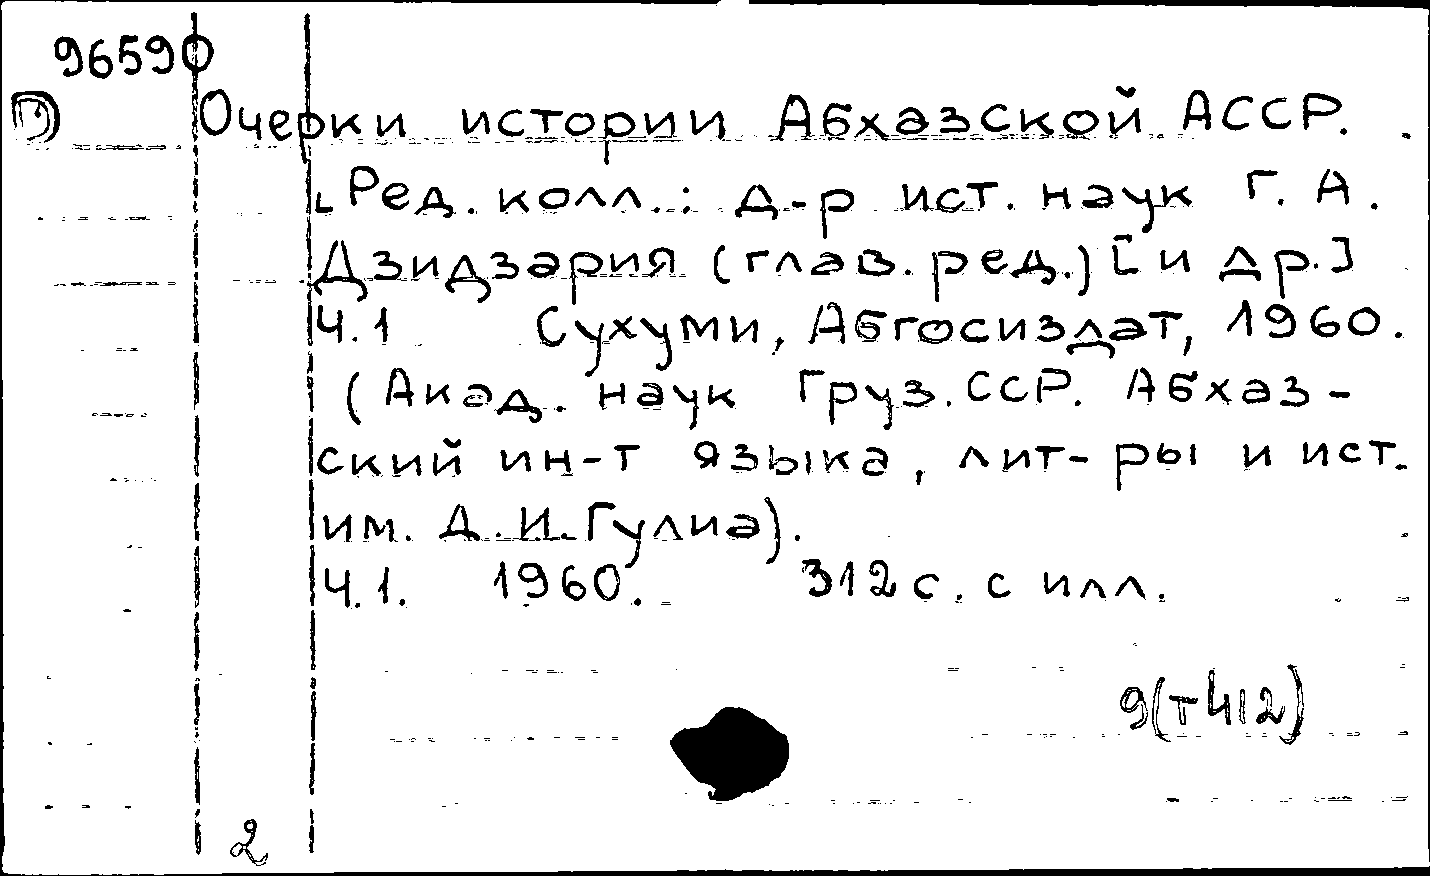 96590
Очерки истории Абхазской АССР.
[Ред. колл.: д-р ист. наук Г. А.
Дзидзария (глав. ред.) [и др.]
Ч.1 Сухуми, Абгосиздат, 1960.
(Акад. наук Груз.ССР. Абхаз-
ский ин-т языка, лит-ры и ист.
им. Д.И.Гулиа).
Ч.1. 1960. 312 с. с илл.
9(т412)
2